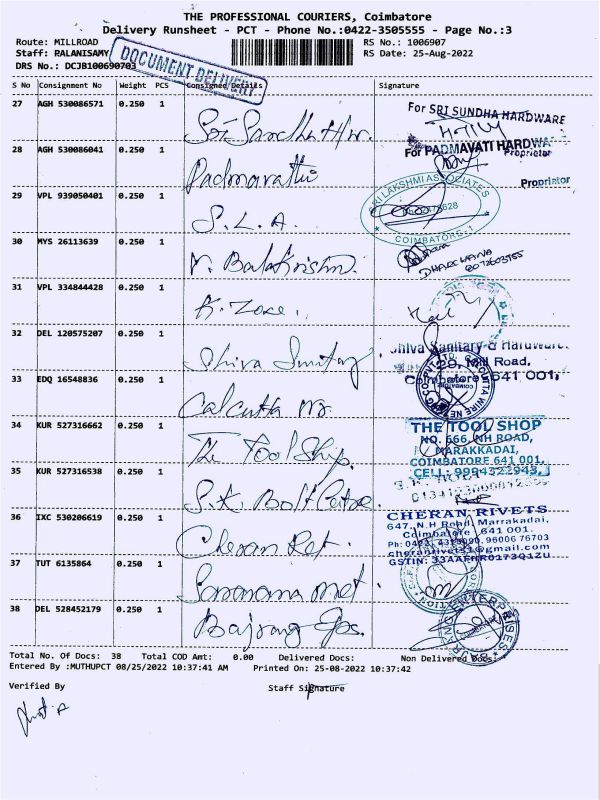 THE PROFESSIONAL COURIERS, Coimbatore
Delivery Runsheet - PCT - Phone No.:0422-3505555 - Page No.:3
Route: MILLROAD
RS No.: 1006907
Staff: PALANISAMY
RS Date: 25-Aug-2022
DRS No.: DCJB100690703
DOCUMENT DELIVERY
S No Consignment No Weight PCS Consignee/Details Signature
27 AGH 530086571 0.250 1 Sri Sandha H/w. For SRI SUNDHA HARDWARE
28 AGH 530086041 0.250 1 Padmavathi For PADMAVATI HARDWA
Proprietor
Proprietor
29 VPL 939050401 0.250 1 S.L.A. SRI LAKSHMI ASSOCIATES
COIMBATORE-1
30 MYS 26113639 0.250 1 V. Balakrishn.
31 VPL 334844428 0.250 1 A. Zone
32 DEL 120575207 0.250 1 Shiva Sanitary Shiva Sanitary & Hardware
29, Mill Road,
Coimbatore 641 001
33 EDQ 16548836 0.250 1 Calcutta
34 KUR 527316662 0.250 1 The Tool Ship. THE TOOL SHOP
NO. 666, NH ROAD,
MARAKKADAI,
COIMBATORE 641 001.
CELL: 9994322943
35 KUR 527316538 0.250 1 S.K. Bolt
36 IXC 530206619 0.250 1 Cheran Ret. CHERAN RIVETS
647, N.H Road, Marrakadai,
Coimbatore 641 001.
cheranrivets1@gmail.com
37 TUT 6135864 0.250 1
38 DEL 528452179 0.250 1 Bajrang ENTERPRISES
Total No. Of Docs: 38 Total COD Amt: 0.00 Delivered Docs: Non Delivered Docs:
Entered By :MUTHUPCT 08/25/2022 10:37:41 AM Printed On: 25-08-2022 10:37:42
Verified By Staff Signature